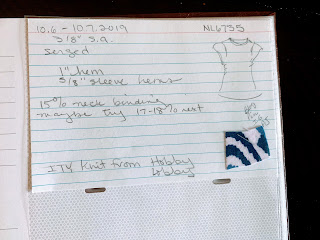 10.6 - 10.7.2019 NL6735
3/8" s.a.
serged
1" hem
5/8" sleeve hems
15% neck binding
-maybe try 17-18% next
ITY Knit from Hobby
Lobby